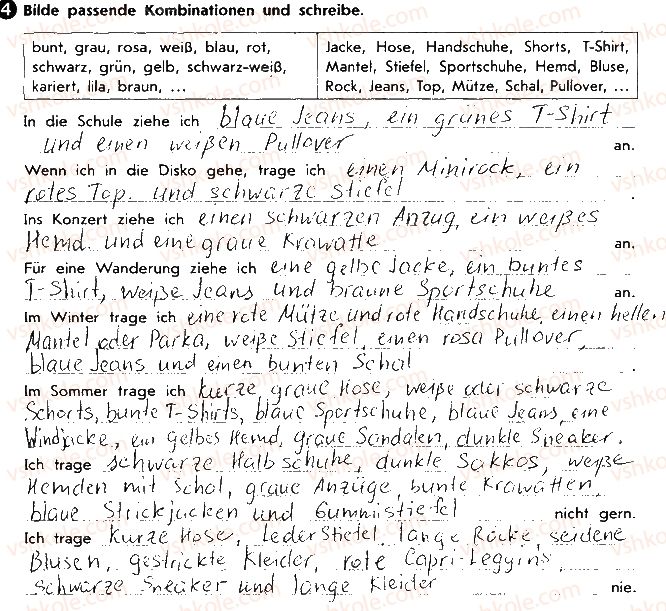 4 Bilde passende Kombinationen und schreibe.
bunt, grau, rosa, weiß, blau, rot,
schwarz, grün, gelb, schwarz-weiß,
kariert, lila, braun, ...
Jacke, Hose, Handschuhe, Shorts, T-Shirt,
Mantel, Stiefel, Sportschuhe, Hemd, Bluse,
Rock, Jeans, Top, Mütze, Schal, Pullover, ...
In die Schule ziehe ich blaue Jeans, ein grünes T-Shirt
und einen weißen Pullover an.
Wenn ich in die Disko gehe, trage ich einen Minirock, ein
rotes Top. und schwarze Stiefel .
Ins Konzert ziehe ich einen schwarzen Anzug, ein weißes
Hemd. und eine graue Krawatte an.
Für eine Wanderung ziehe ich eine gelbe Jacke, ein buntes
T-Shirt, weiße Jeans und braune Sportschuhe an.
Im Winter trage ich eine rote Mütze und rote Handschuhe, einen hellen
Mantel oder Parka, weiße Stiefel, einen rosa Pullover,
blaue Jeans und einen bunten Schal .
Im Sommer trage ich kurze graue Hose, weiße oder schwarze
Schorts, bunte T-Shirts, blaue Sportschuhe, blaue Jeans, eine
Windjacke, ein gelbes Hemd, graue Sandalen, dunkle Sneaker.
Ich trage schwarze Halbschuhe, dunkle Sakkos, weiße
Hemden mit Schal, graue Anzüge, bunte Krawatten,
blaue Strickjacken und Gummistiefel nicht gern.
Ich trage kurze Hose, Lederstiefel, lange Röcke, seidene
Blusen, gestrickte Kleider, rote Capri-Leggins,
schwarze Sneaker und lange Kleider nie.